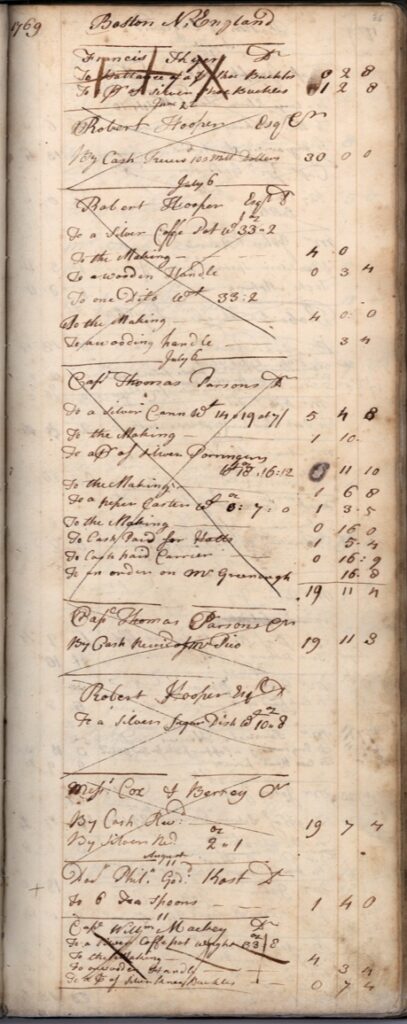 1769 Boston N, England
Francis Dr
To of Shoe Buckles 0 2 8
To Pr of Silver Shoe Buckles 0 1 2 8
June 2
Robert Hooper Esqr Cr
By Cash 100 Mill Dollars 30 0 0
July 6
Robert Hooper Esqr Dr
To a Silver Coffe Pot Wt 33-2
To the Making 4 0
To a wooden Handle 0 3 4
To one Dito Wt 33:2
To the Making 4 0 0
To a wooding handle 3 4
July 6
Capt Thomas Parsons Dr
To a Silver Cann Wt 14"19 at 7/ 5 4 8
To the Making 1 10
To a Pr of Silver Porringers
Wt 18.16:12 11 10
To the Making 1 6 8
To a peper Caster Wt oz 3:7:0 1 3-5
To the Making 0 16 0
To Cash Paid for Hatts 1 5-4
To Cash paid Carrier 0 16:9
To an order on Mr Greenough 16-8
19 11 4
Capt Thomas Parsons Cr
By Cash of Mr 19 11 3
Robert Hooper Esqr Dr
To a Silver Sugar Dish Wt oz 10-8
Messrs Cox & Berrey Cr
By Cash Recd 19 7 4
By Silver Red oz 2-1
August 11
Docr Phil. Godd Kast Dr
To 6 Tea Spoons 1 4 0
11
Capt Willm Mackey Dr
To a Silver Coffepot weight oz 33/8
To the Making 4
To a wooden Handle 3 4
To a Pr of Buckles 0 7 4